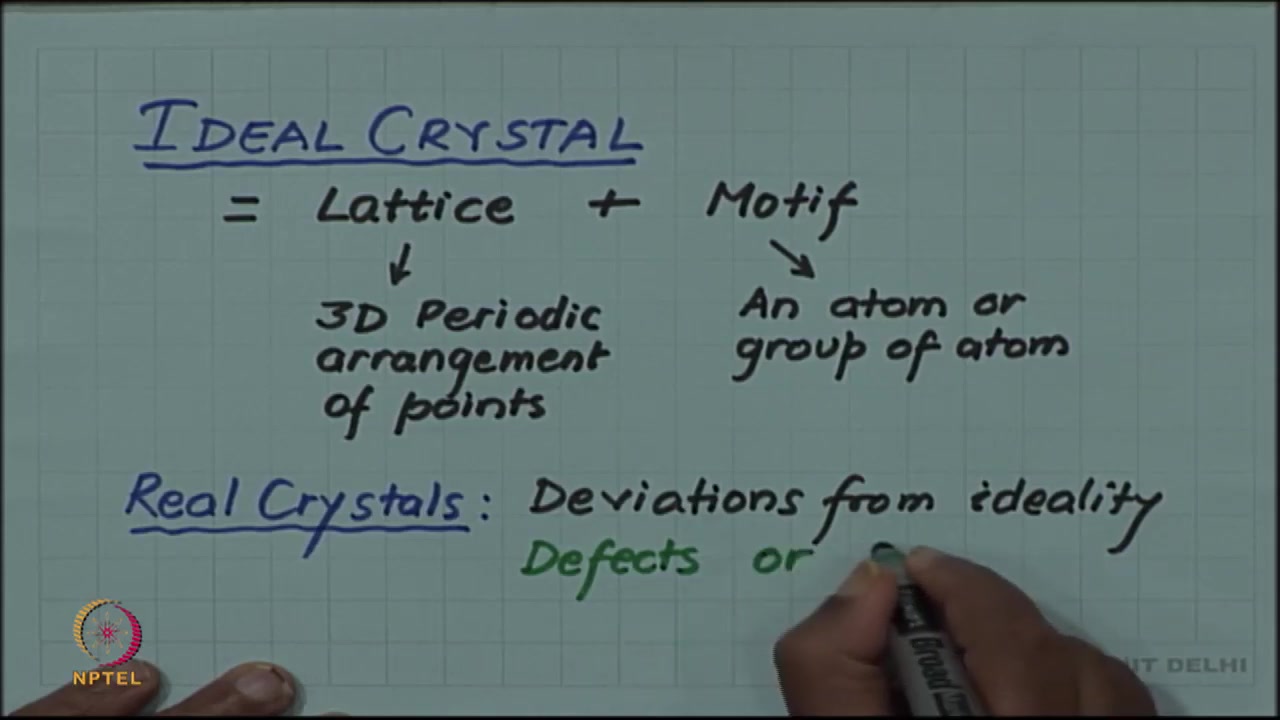 IDEAL CRYSTAL
= Lattice + Motif
3D Periodic
arrangement
of points
An atom or
group of atom
Real Crystals: Deviations from ideality
Defects or
Broad
NPTEL
IIT DELHI